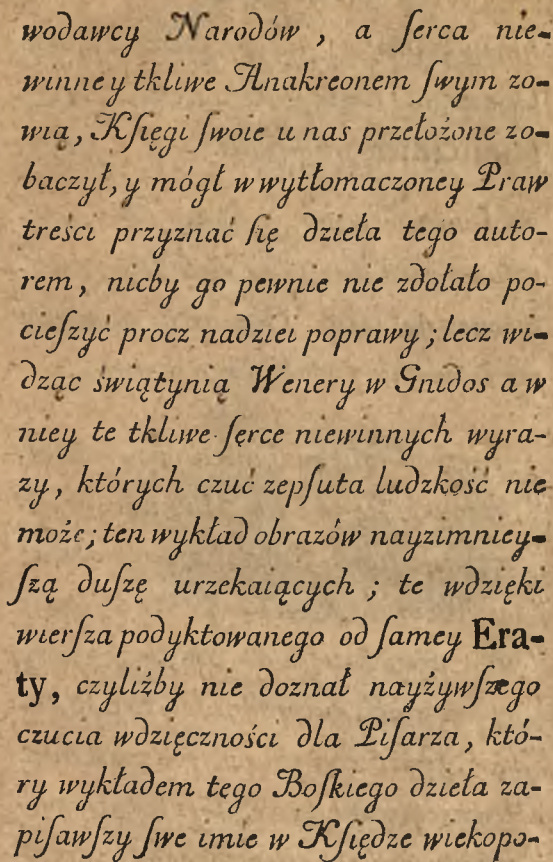 wodawcy Narodów, a ſerca nie-
winne y tkliwe Anakreonem ſwym zo-
wią, Kſięgi ſwoie u nas przełożone zo-
baczył, y mógł w wytłomaczoney Praw
treści przyznać ſię dzieła tego auto-
rem, nicby go pewnie nie zdołało po-
cieſzyć procz nadziei poprawy; lecz wi-
dząc świątynią Wenery w Gnidos a w
niey te tkliwe ſerce niewinnych wyra-
zy, których czuć zepſuta ludzkość nie
może; ten wykład obrazów nayzimniey-
ſzą duſzę urzekaiących; te wdzięki
wierſza podyktowanego od ſamey Era-
ty, czyliżby nie doznał nayżywſzego
czucia wdzięczności dla Piſarza, któ-
ry wykładem tego Boſkiego dzieła za-
piſawſzy ſwe imie w Kſiędze wiekopo-